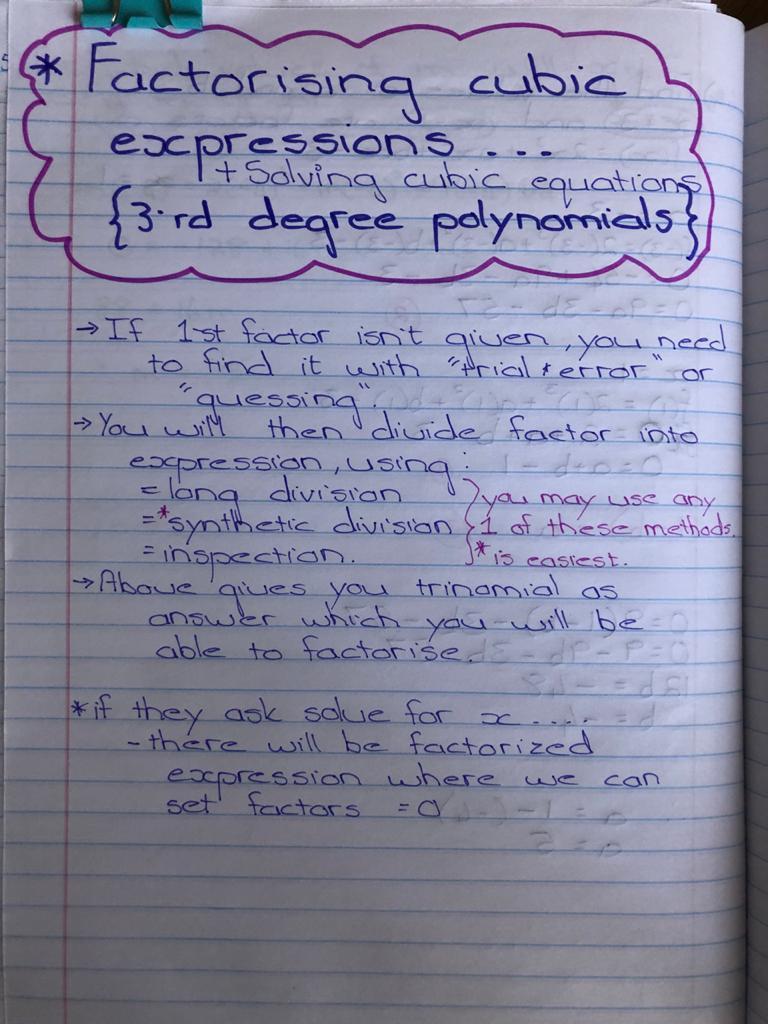 * Factorising cubic
expressions ...
+ Solving cubic equations
{3·rd degree polynomials}
→ If 1st factor isn't given, you need
to find it with "trial + error" or
"guessing".
→ You will then divide factor into
expression, using:
= long division
= *synthetic division
= inspection.
you may use any
1 of these methods.
* is easiest.
→ Above gives you trinomial as
answer which you will be
able to factorise.
* if they ask solve for x ....
- there will be factorized
expression where we can
set factors = 0